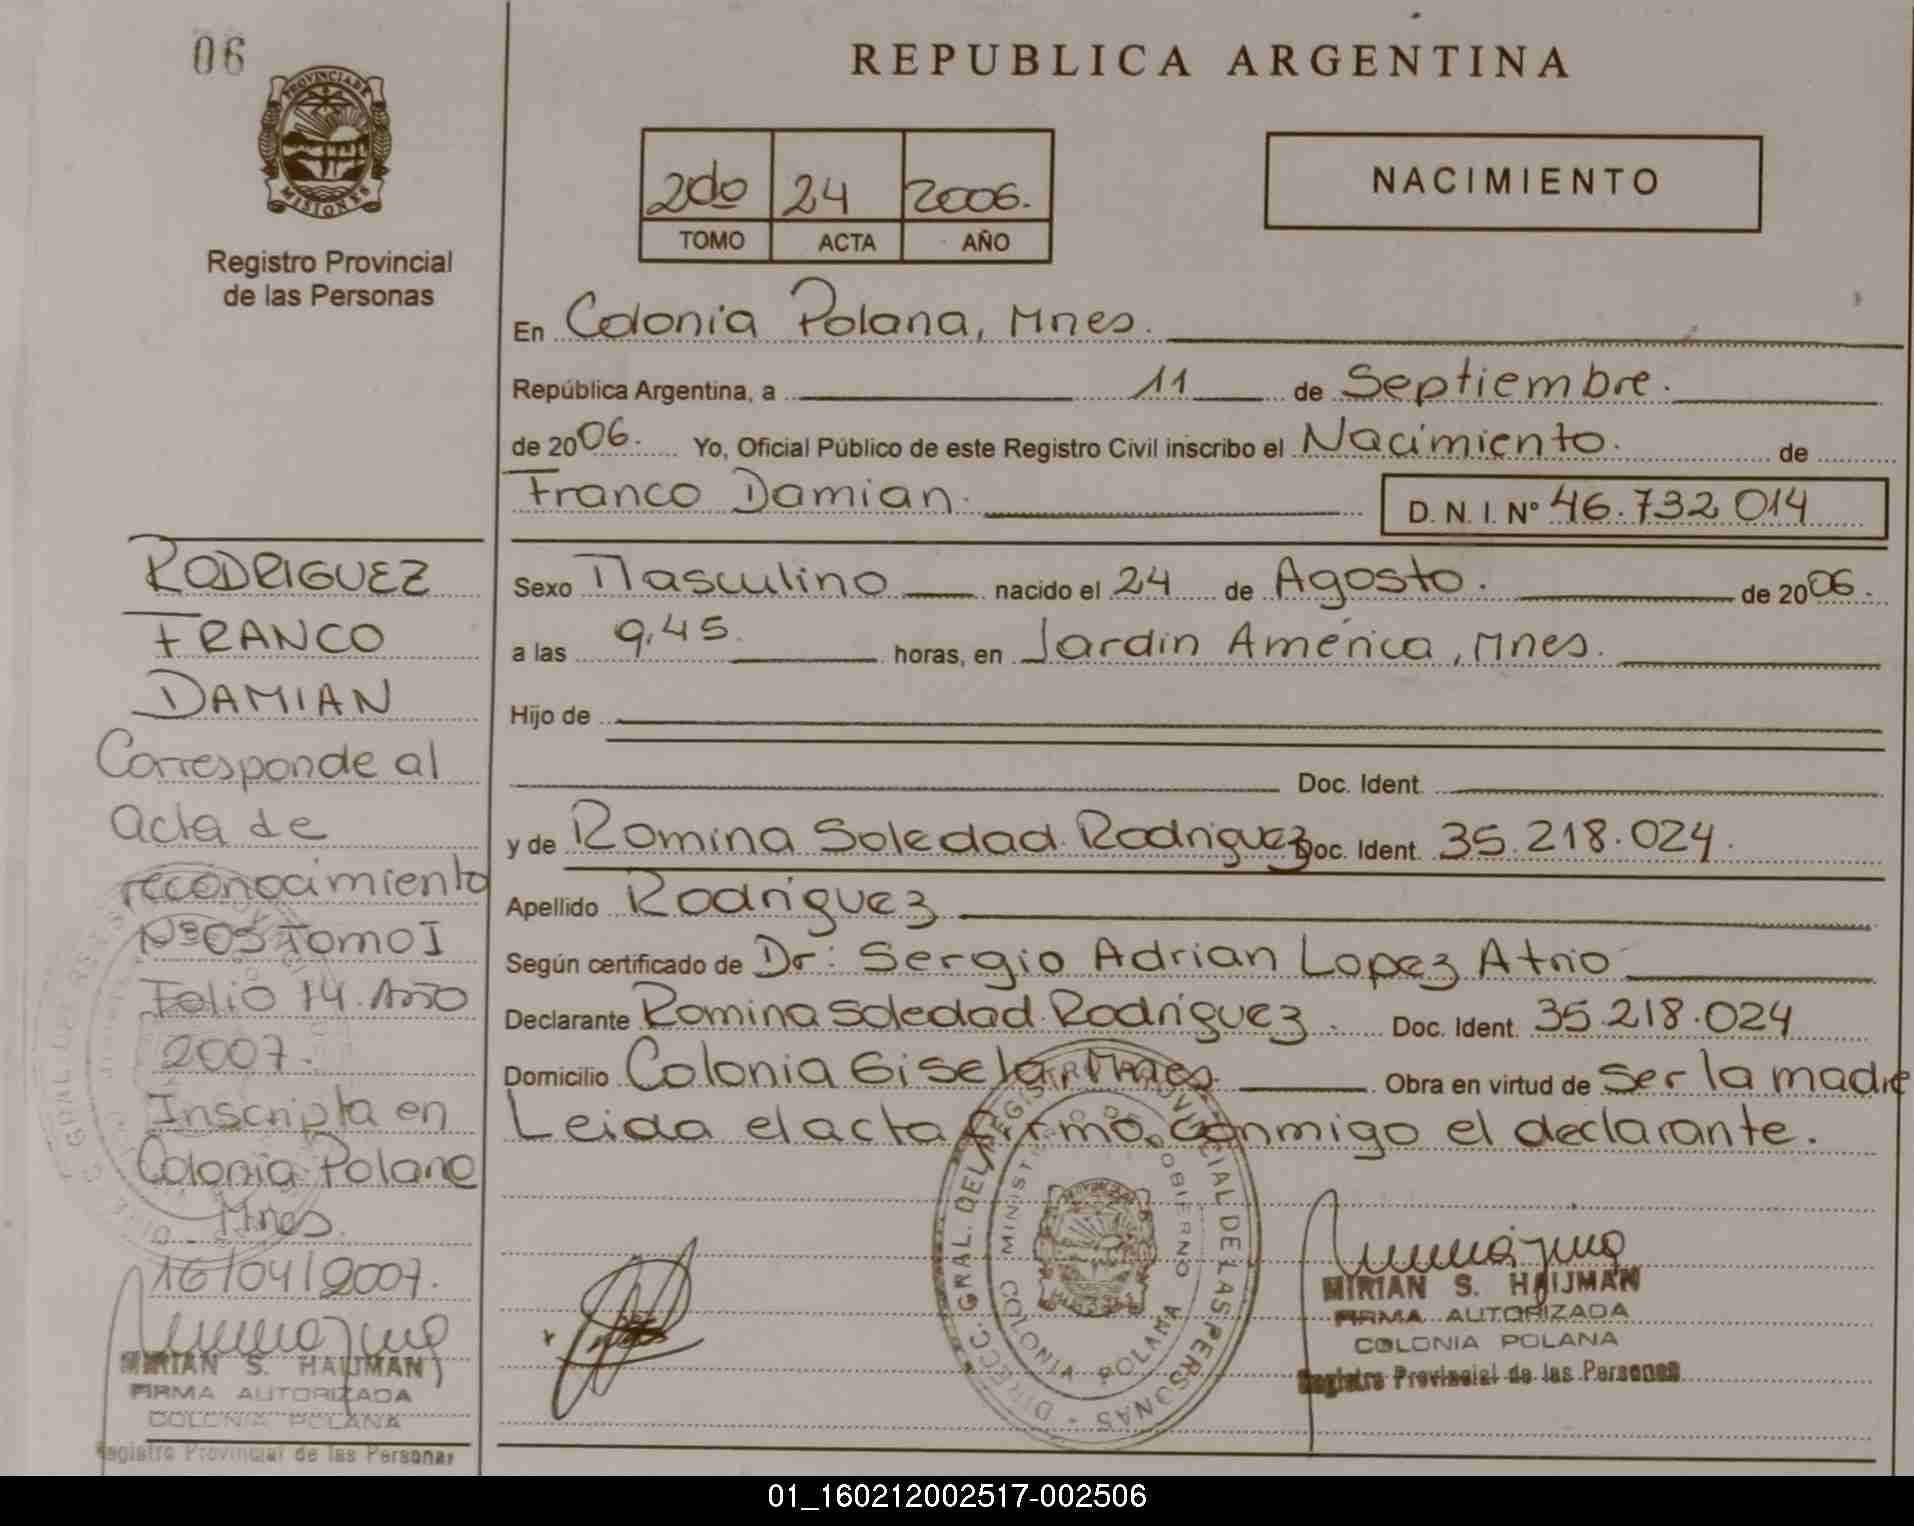 06
PROVINCIA DE
MISIONES
Registro Provincial
de las Personas
REPUBLICA ARGENTINA
2do 24 2006.
TOMO ACTA AÑO
NACIMIENTO
En Colonia Polana, Mnes.
República Argentina, a 11 de Septiembre.
de 2006. Yo, Oficial Público de este Registro Civil inscribo el Nacimiento. de
Franco Damian. D. N. I. Nº 46.732 014
Sexo Masculino nacido el 24 de Agosto. de 2006.
a las 9,45. horas, en Jardin América, Mnes.
Hijo de
Doc. Ident.
y de Romina Soledad Rodriguez Doc. Ident. 35.218.024.
Apellido Rodriguez
Según certificado de Dr: Sergio Adrian Lopez Atrio
Declarante Romina Soledad Rodriguez. Doc. Ident. 35.218.024
Domicilio Colonia Gisela, Mnes. Obra en virtud de Ser la madre
Leida el acta firmo conmigo el declarante.
RODRIGUEZ
FRANCO
DAMIAN
Corresponde al
acta de
reconocimiento
Nº 03 Tomo I
Folio 14. Año
2007.
Inscripta en
Colonia Polana
Mnes.
16/04/2007.
MIRIAN S. HAIJMAN
FIRMA AUTORIZADA
COLONIA POLANA
Registro Provincial de las Personas
DIRECC. GRAL. DEL REGISTRO PROVINCIAL DE LAS PERSONAS
MINISTERIO DE GOBIERNO
COLONIA POLANA
MIRIAN S. HAIJMAN
FIRMA AUTORIZADA
COLONIA POLANA
Registro Provincial de las Personas
01_160212002517-002506